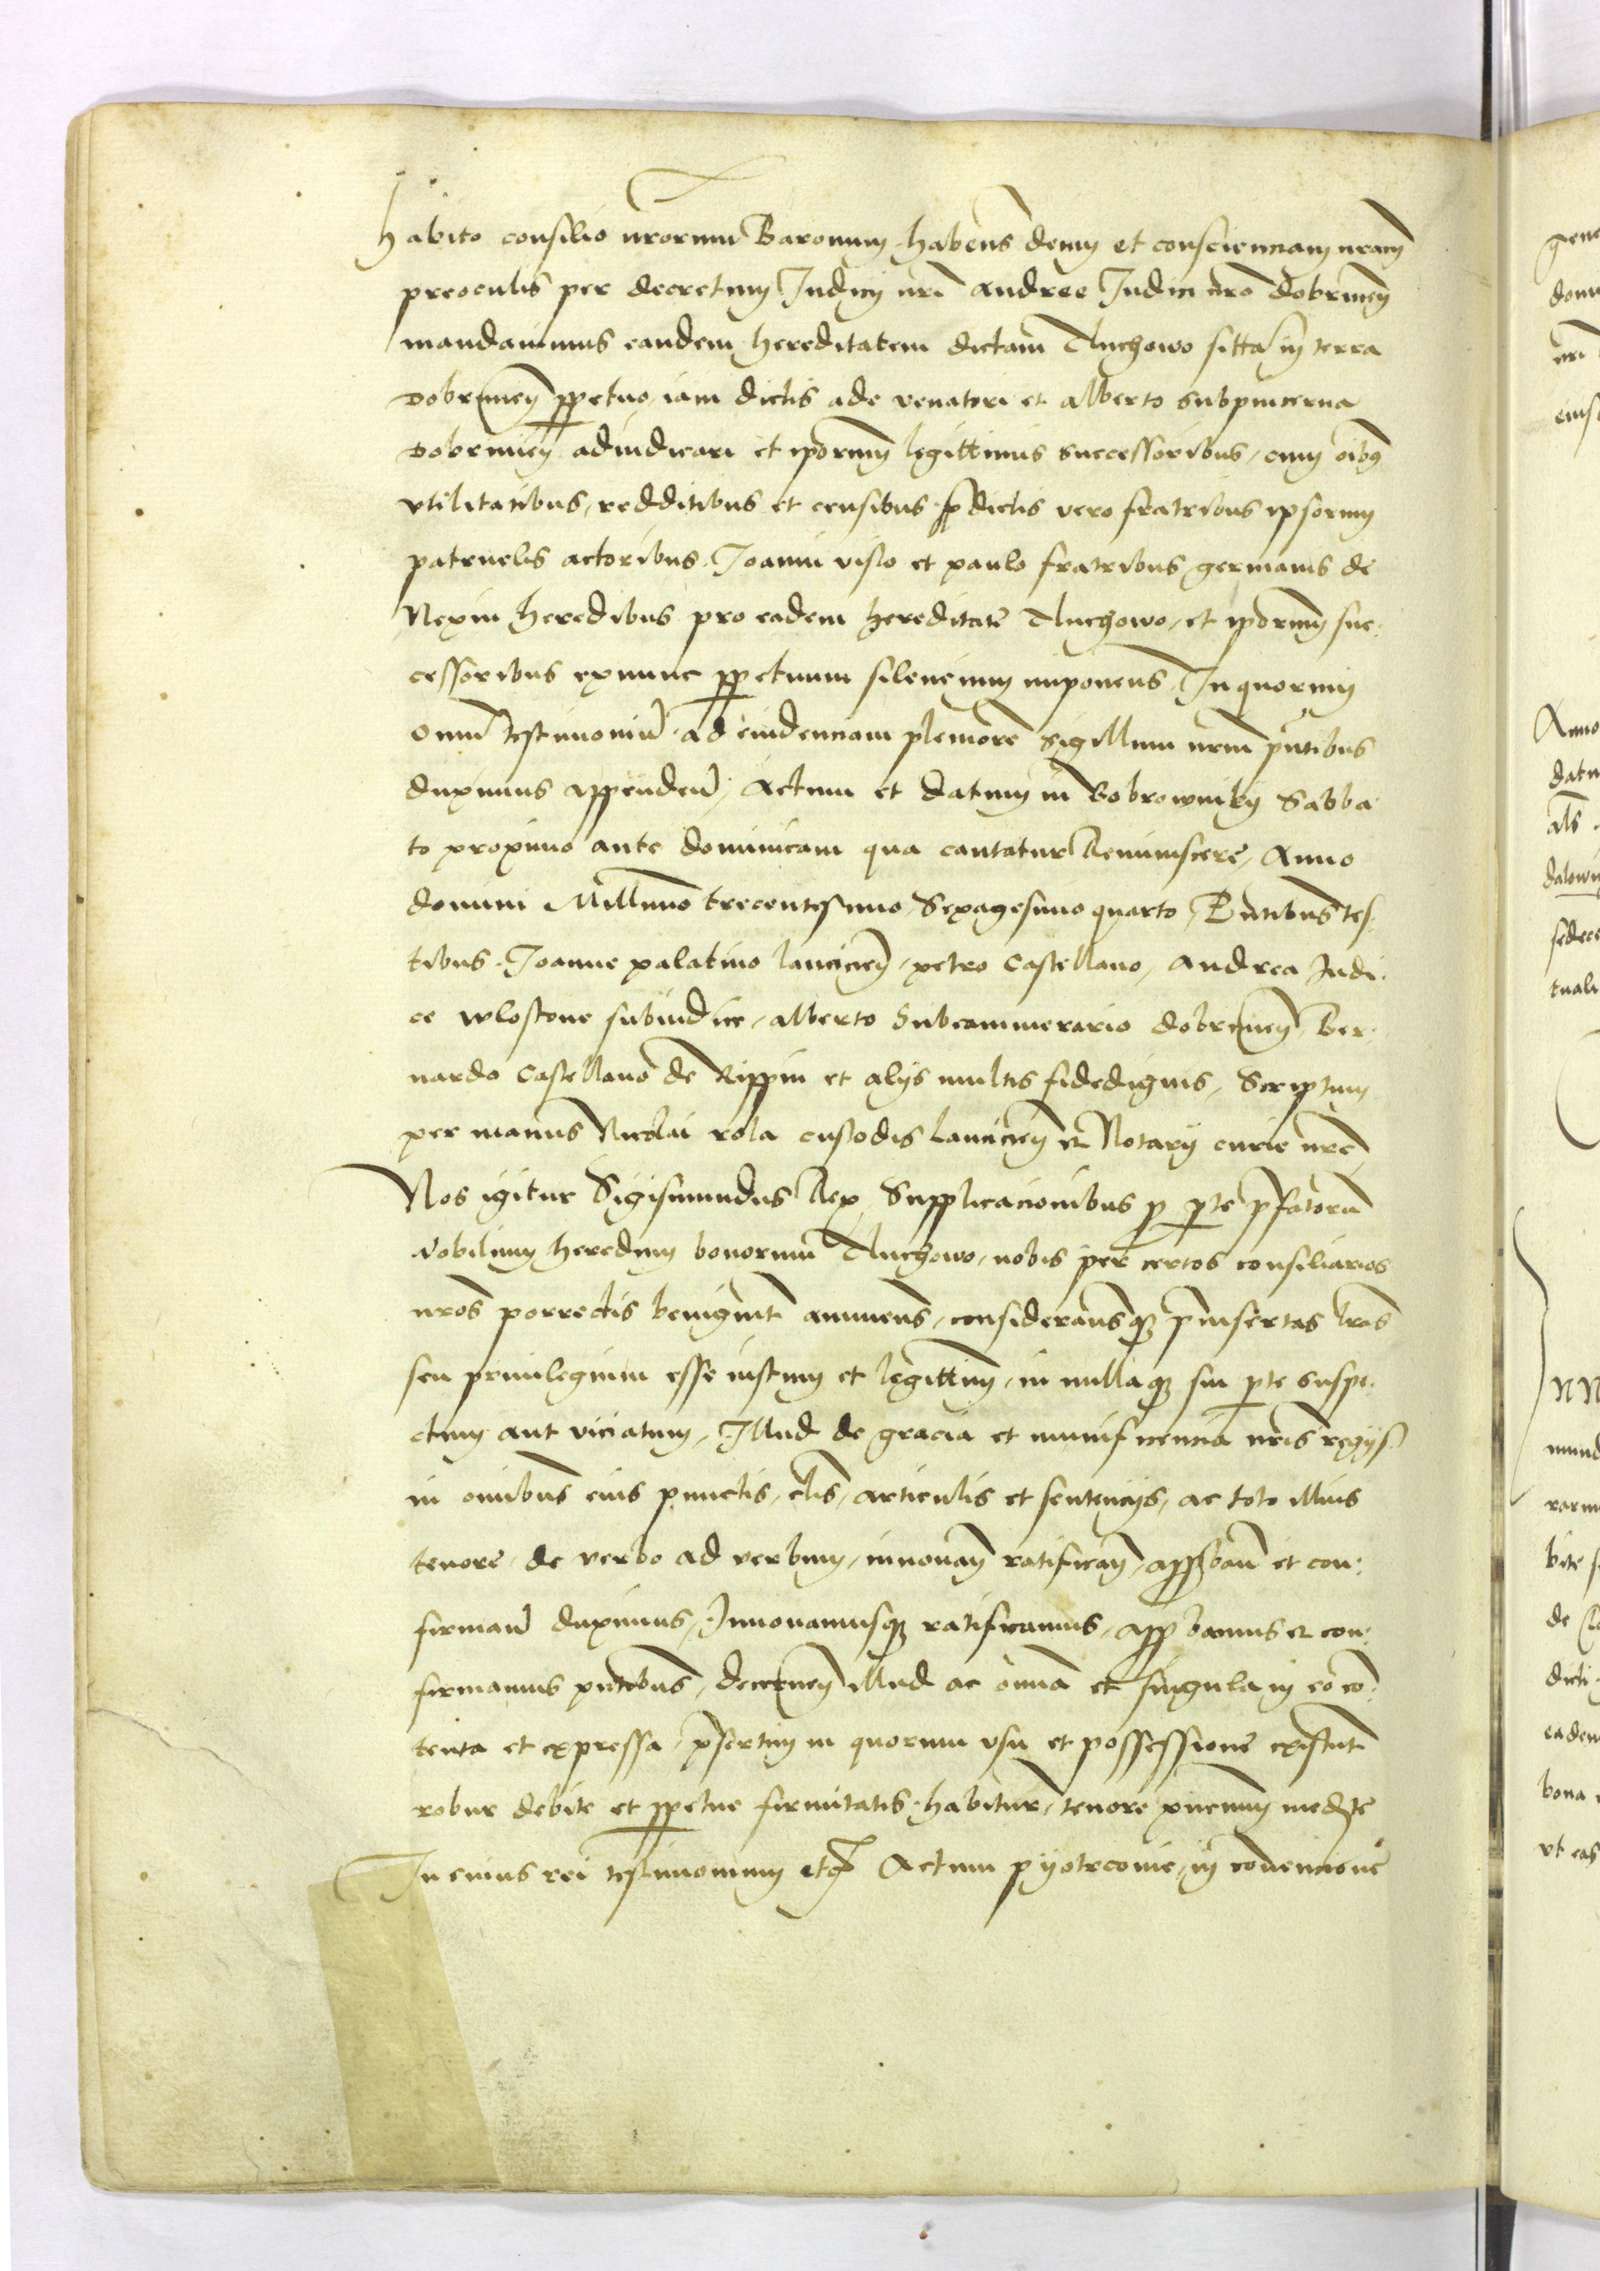 habito consilio nrorum Baronum habens deum et conscienciam nram
preoculis per decretum Judicij nri andree Judici nro dobrinen
mandauimus eandem hereditatem dictam Auchowo sitta in terra
dobrinen ppetuo iam dictis ade venatori et alberto subpincerna
dobrinen adiudicari et ipsorum legittimis successoribus, cum oibus
vtilitatibus, redditibus et censibus pdictis vero fratribus ipsorum
patruelis actoribus Joanni visto et paulo fratribus germanis de
Nexin heredibus pro eadem hereditate Auchowo, et ipsorum suc:
cessoribus exnunc ppetuum silencium imponens, In quorum
omniu testimoniu ad euidenciam pleniorem sigillum nrum pntibus
duximus appendendu, Actum et datum in Bobrowniky Sabba
to proximo ante dominicam qua cantatur Reminiscere, Anno
domini Millimo trecentesimo Sexagesimo quarto, Pntibus tes
tibus Joanne palatino lancicien, petro Castellano, andrea Judi
ce wlostone subiudice, alberto Subcamerario dobrinen, Ber
nardo Castellano de Rippin et alijs multis fidedignis, Scriptum
per manus Nicolai rola custodis lancicien et Notarij curie nre,
Nos igitur Sigismundus Rex Supplicacionibus p pte pfatoru
Nobilium heredum bonorum Auchowo, nobis per certos consiliarios
nros porrectis benignit annuens, consideransq pinsertas lras
seu priuilegium esse iustum et legittimu, in nullaq sui pte suspe
ctum aut viciatum, Illud de gracia et munificencia nris regijs
in omibus eius punctis, clis, articulis et sentencijs, ac toto illius
tenore de verbo ad verbum, innouan ratifican, approban et con:
firmand duximus, Innouamusq ratificamus, approbamus et con:
firmamus pntibus, decernen illud ac omnia et singula in eo co
tenta et expressa, psertim in quorum vsu et possessione existut
robur debite et ppetue firmitatis habitur, tenore pncium medte
In cuius rei testimonium etc Actum pyotrcouie, in couencione